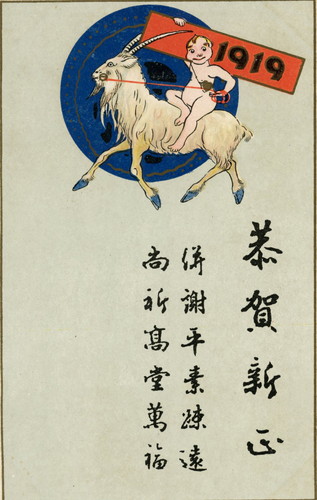 1919
恭賀新正
併謝平素踈遠
尚祈髙堂萬福